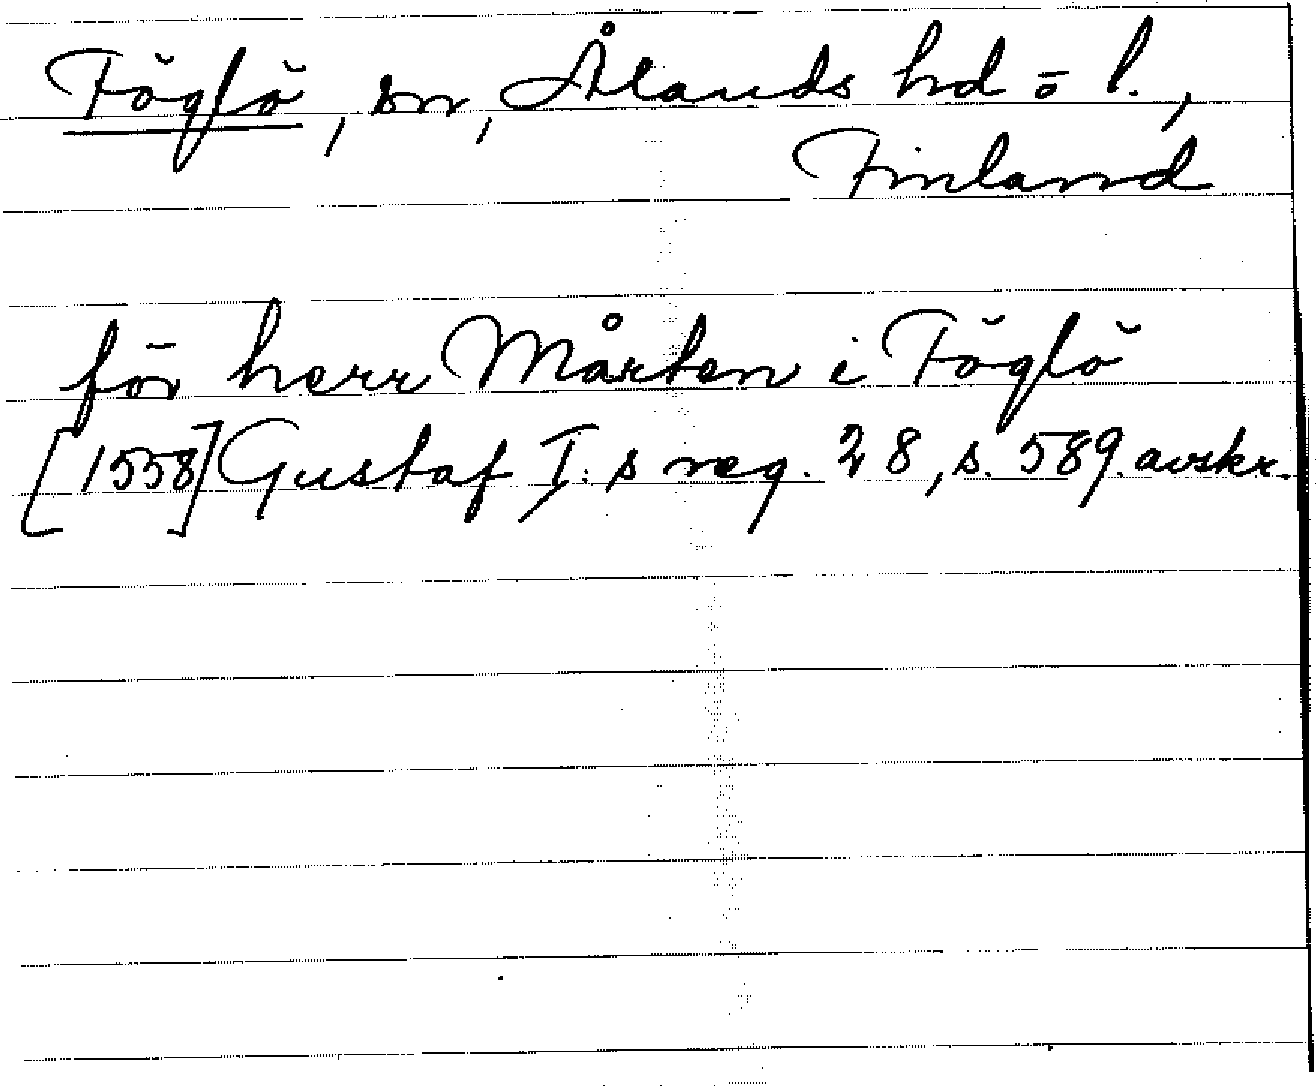 Föglö, sn, Ålands hd o l.,
Finland
för herr Mårten i Föglö
[1558] Gustaf I:s reg. 28, s. 589. avskr.